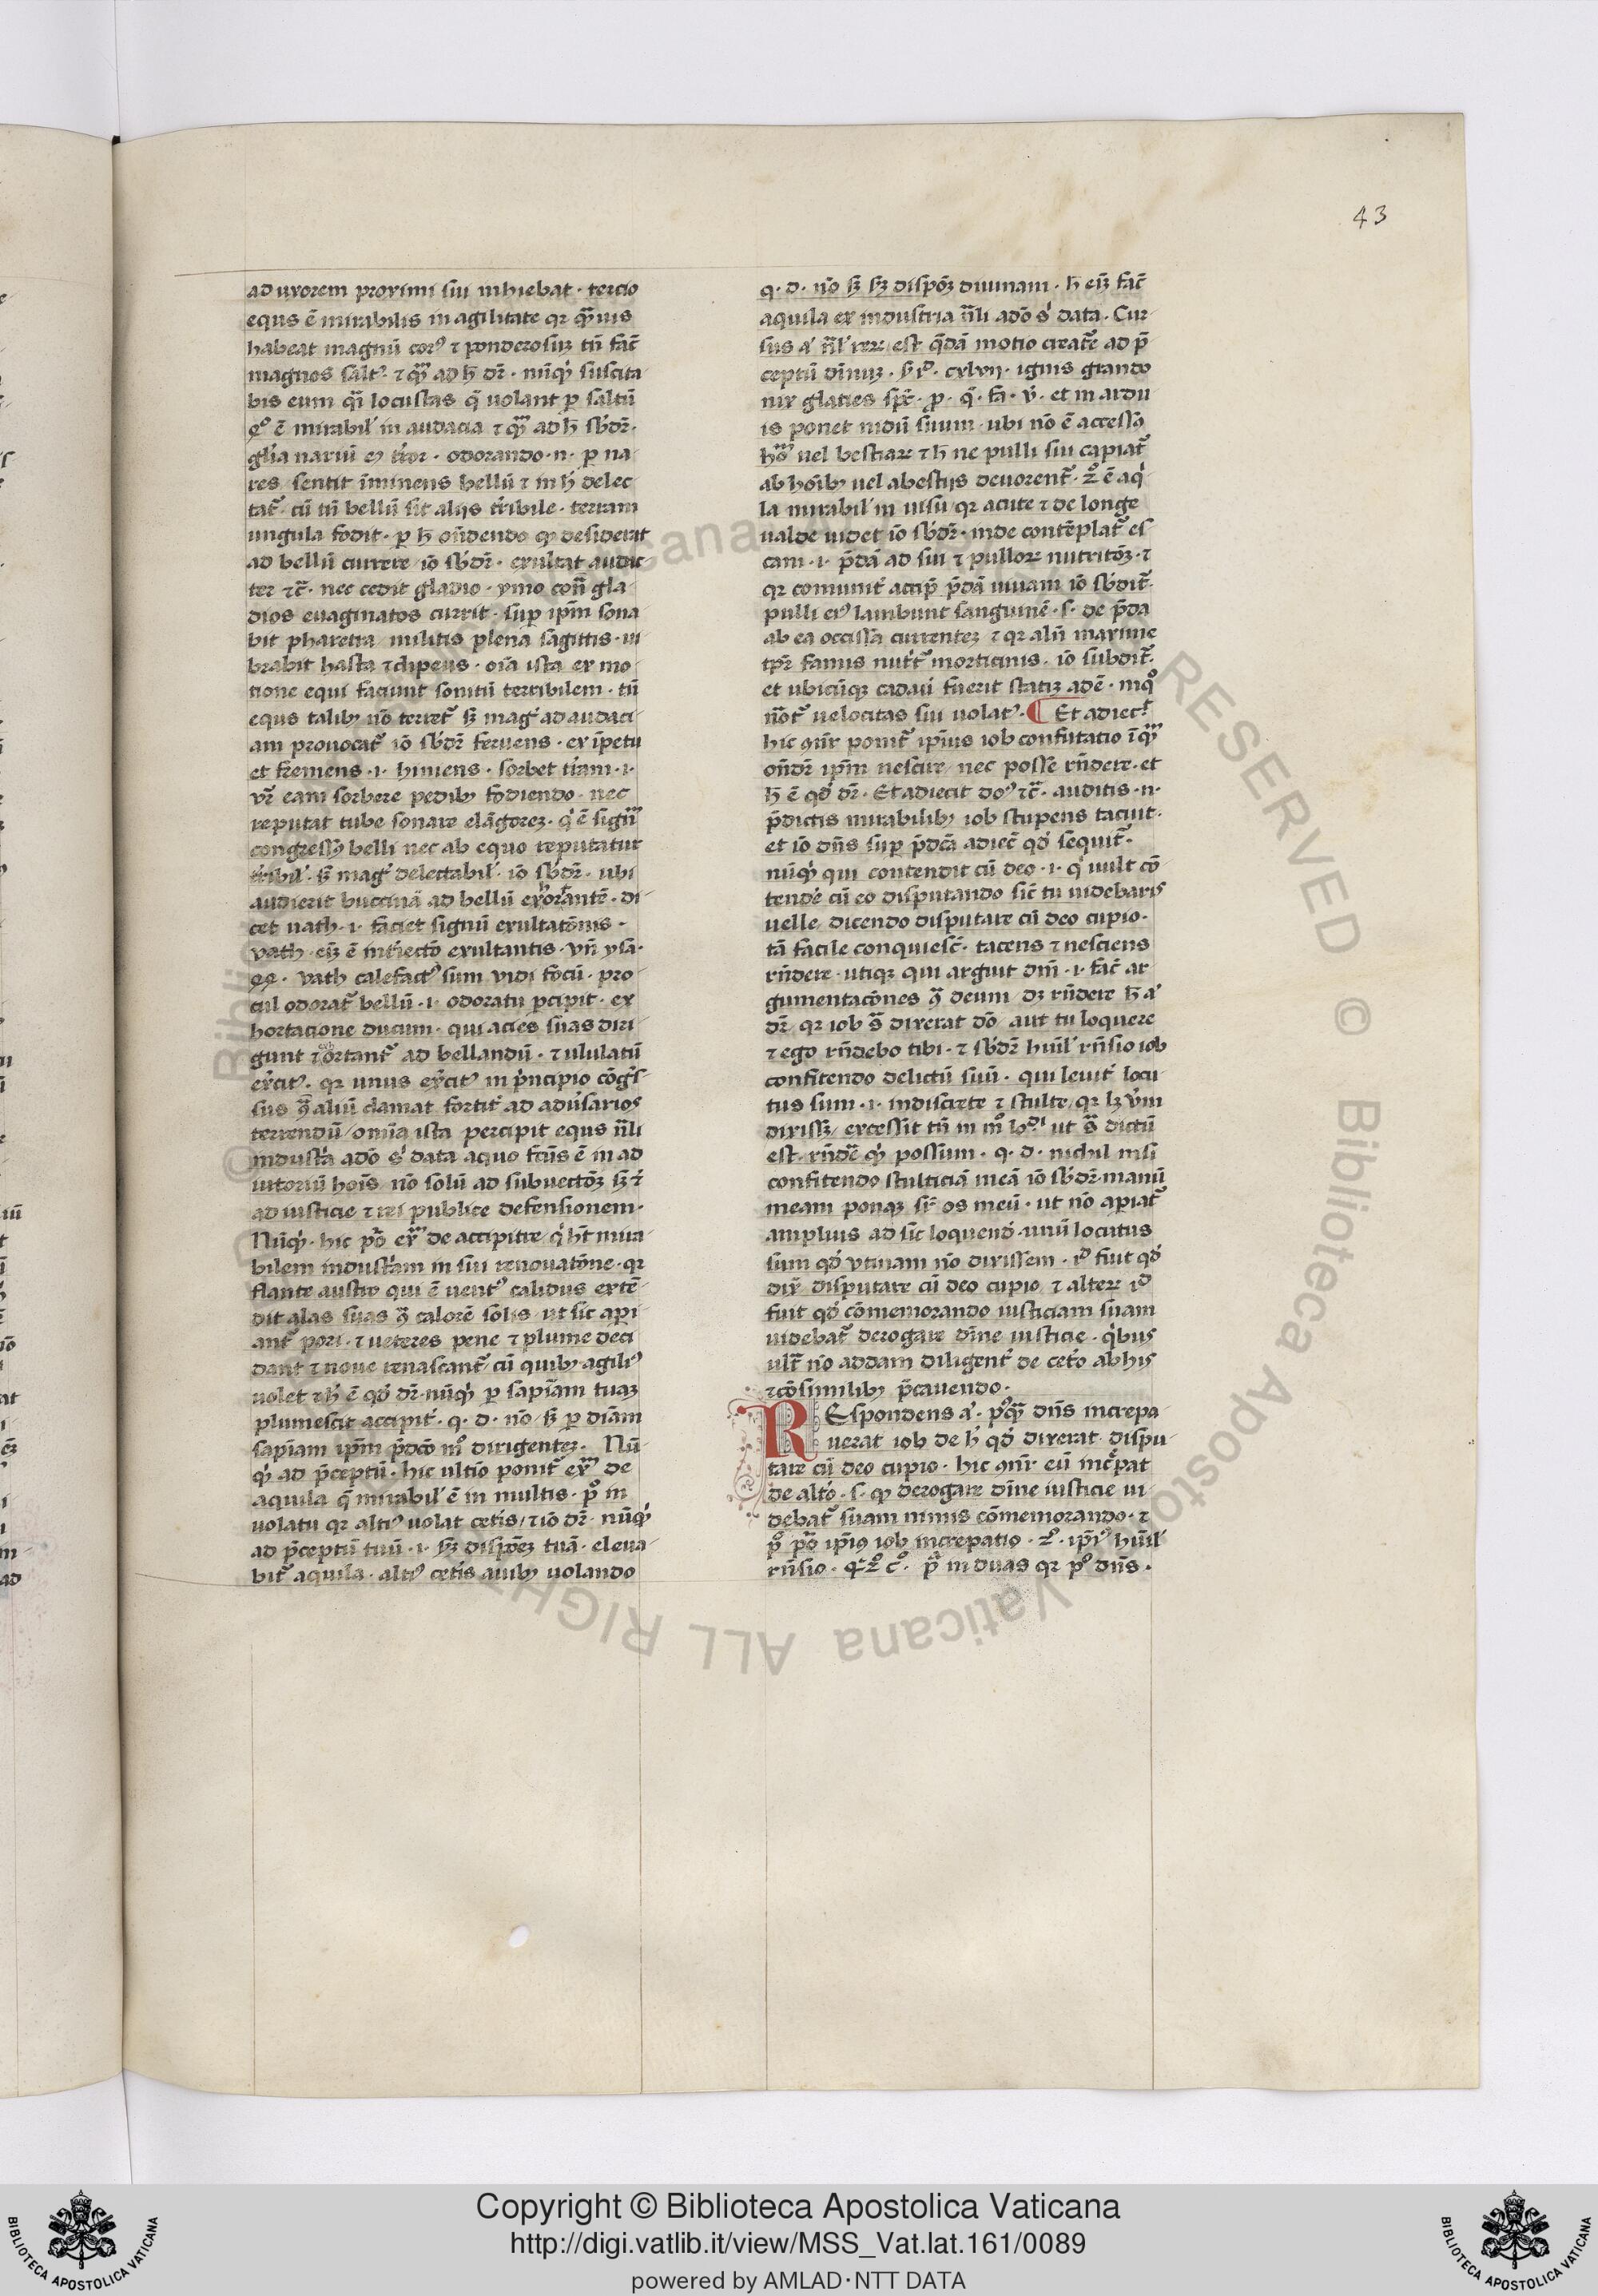 43
ad uxorem proximi sui inhiebat · tercio
equs ē mirabilis in agilitate qr quis
habeat magnū corp⁹ ⁊ ponderosuz tn̄ fac̄
magnos salt⁹ · ⁊ ad h̄ dr̄ · nūqͥ suscita
bis eum qͥ locustas q̄ uolant p saltū
ē mirabil' in audacia ⁊ ad h̄ sb̓dr̄ ·
gl̓ia nariū ei̓ t̓ror · odorando · n · p na
res sentit īminens bellū ⁊ in h̓ delec
tat᷑ · cū tn̄ bellū sit alijs t̓ribile · terram
ungula fodit · p h̄ on̄dendo qͥ desiderat
ad bellū currere io̅ sb̓dr̄ · exultat audac
ter ⁊c̄ · nec cedit gladio · ymo con̄ gla
dios euaginatos currit · sup ip̄m sona
bit pharetra militis plena sagittis · ui
brabit hasta ⁊ clipeus · oīa ista ex mo
tione equi faciunt sonitū terribilem · tn̄
equs talib; nō terret᷑ sꝫ mag̓ ad audaci
am prouocat᷑ iō sb̓dr̄ feruens · ex īpetu
et fremens · i · hiniens · sorbet t̓ram · i ·
vr̄ eam sorbere pedib; fodiendo · nec
reputat tube sonare clāgorez · qͥ ē signū
congressꝰ belli nec ab equo reputatur
t̓ribil' · sꝫ mag̓ delectabil' · iō sb̓dr̄ · ubi
audierit buccinā ad bellū exhortantē · di
cet uath · i · faciet signū exultatōnis ·
vath · eiꝫ ē int̓iectō exultantis · vn̄ ysa ·
vath calefactꝰ sum vidi focū · pro
cul odorat᷑ bellū · i · odoratu p̱cipit · ex
hortacione ducum · qui acies suas diri
gunt ⁊ ortant᷑ ad bellandū · ⁊ ululatū
ex̓citꝰ · qr unus ex̓citꝰ in p̓ncipio cōg̓s
sus aliū clamat fortit̓ ad adu̓sarios
terrendū / omīa ista percipit equs n̄li
indust̓a adō s̓ data a quo fc̄us ē in ad
iutoriū hoīs nō solū ad subuectōꝫ sꝫ
ad iusticie ⁊ rei publice defensionem ·
Nūqͥ · hic pōͦ de accipitre qͥ h̄t mira
bilem indust̓am in sui renouatōne · qr
flante austro qui ē uentꝰ calidus extē
dit alas suas calorē solis ut sic api
ant᷑ pori · ⁊ ueteres pene ⁊ plume deci
dant ⁊ noue renascant᷑ cū quib; agiliꝰ
uolet ⁊ h̓ ē qd̓ dr̄ · nūqͥ p sapīam tuaꝫ
plumescit accipit̓ · q · d · nō / sꝫ p diāam
sapīam ip̄m p̄dcō mͦ dirigentez · Nū
qͥ ad p̄ceptū · hic ultīo ponit᷑ de
aquila q̄ mirabil' ē in multis · pͦ in
uolatu qr altiꝰ uolat cet̓is / ⁊ iō dr̄ · nūqͥ
ad p̄ceptū tuū · i · sꝫ disp̄oēꝫ tuā · eleua
bit᷑ aquila · altiꝰ cet̓is auib; uolando
q · d · nō sꝫ sꝫ dispōꝫ diuinam · h̄ eiꝫ fac̄
aquila ex industria n̄li adō s̓ data · Cur
sus a̓ n̄l' reꝝ est q̄dā motio creat᷑e ad p̄
ceptū dīnuꝫ · cxlvij · ignis grando
nix glacies · et in ardu
is ponet nidū suum · ubi nō ē accessꝰ
uel bestiaꝝ ⁊ h̄ ne pulli sui capiāt᷑
ab hoīb; uel a bestijs deuorent᷑ · zͦ ē aqͥ
la mirabil' in uisu qr acute ⁊ de longe
ualde uidet iō sb̓dr̄ · inde contēplat᷑ es
cam · i · p̄dā ad sui ⁊ pulloꝝ nutritōꝫ · ⁊
qr comunit̓ accip̄ p̄dā uiuam iō sb̓dit᷑ ·
pulli eiꝰ lambunt sanguinē · s · de p̄da
ab ea occissa currentez ⁊ qr aliū maxime
tp̄r famis nut̓t᷑ morticinis · iō subdit᷑ ·
et ubicūqꝫ cadau̓ fuerit statiꝫ adē · in qͦ
not᷑ uelocitas sui uolatꝰ · ¶ Et adiec᷑t
hic ponit᷑ ip̄ius iob confutatio ī
on̄dr̄ ip̄m nescire / nec posse rn̄dere · et
h̄ ē qd̓ dr̄ · Et adiecit doꝰ ⁊c̄ · auditis · n ·
p̄dictis mirabilib; iob stupens tacuit ·
et iō dn̄s sup p̄dcā adiec̄ qd̓ sequit᷑ ·
nūqͥ qui contendit cū deo · i · qͥ uult cō
tende̓ cū eo disputando sic̄ tu uidebaris
uelle / dicendo disputare cū deo cupio ·
tā facile conquiesc̄ · tacens ⁊ nesciens
rn̄dere · utiqꝫ qui arguit dm̄ · i · fac̄ ar
gumentacōnes deum dꝫ rn̄dere h̄ a̓
dr̄ / qr iob s̄ dixerat dō / aut tu loquere
⁊ ego rn̄debo tibi · ⁊ sb̓dr̄ huīl' rn̄sio iob
confitendo delictū suū · qui leuit̓ locu
tus sum · i · indiscrete ⁊ stulte / qr lꝫ v̓m
dixissꝫ / excessit tn̄ in mͦ ut s̄ dictū
est · rn̄de᷑ qͥ possum · q · d · nichil nisi
confitendo stulticiā meā iō sb̓dr̄ · manū
meam ponaꝫ sr̄ os meū · ut nō apiat᷑
amplius ad sic loquend̓ · unū locutus
sum qd̓ vtinam nō dixissem · iᵈ fuit qd̓
dix̓ disputare cū deo cupio ⁊ alteꝝ iᵈ
fuit qd̓ cōmemorando iusticiam suam
uidebat᷑ derogare dīne iusticie · qͥbus
ult̄ nō addam diligent̓ de cet̓o ab his
⁊ cōsimilib; p̄cauendo ·
REspondens a̓ · pͦq̄ dn̄s increpa
uerat iob de h̓ qd̓ dixerat dispu
tare cū deo cupio · hic eū inc̓pat
de alt̓o · s · qͥ derogare dīne iusticie ui
debat᷑ suam nimis cōmemorando · ⁊
pͦ pōͦ ip̄iꝰ iob increpatio · zͦ · ip̄iꝰ huīl'
rn̄sio · in duas qr pͦ dn̄s ·
Copyright © Biblioteca Apostolica Vaticana
http://digi.vatlib.it/view/MSS_Vat.lat.161/0089
powered by AMLAD·NTT DATA
BIBLIOTECA APOSTOLICA VATICANA
BIBLIOTECA APOSTOLICA VATICANA